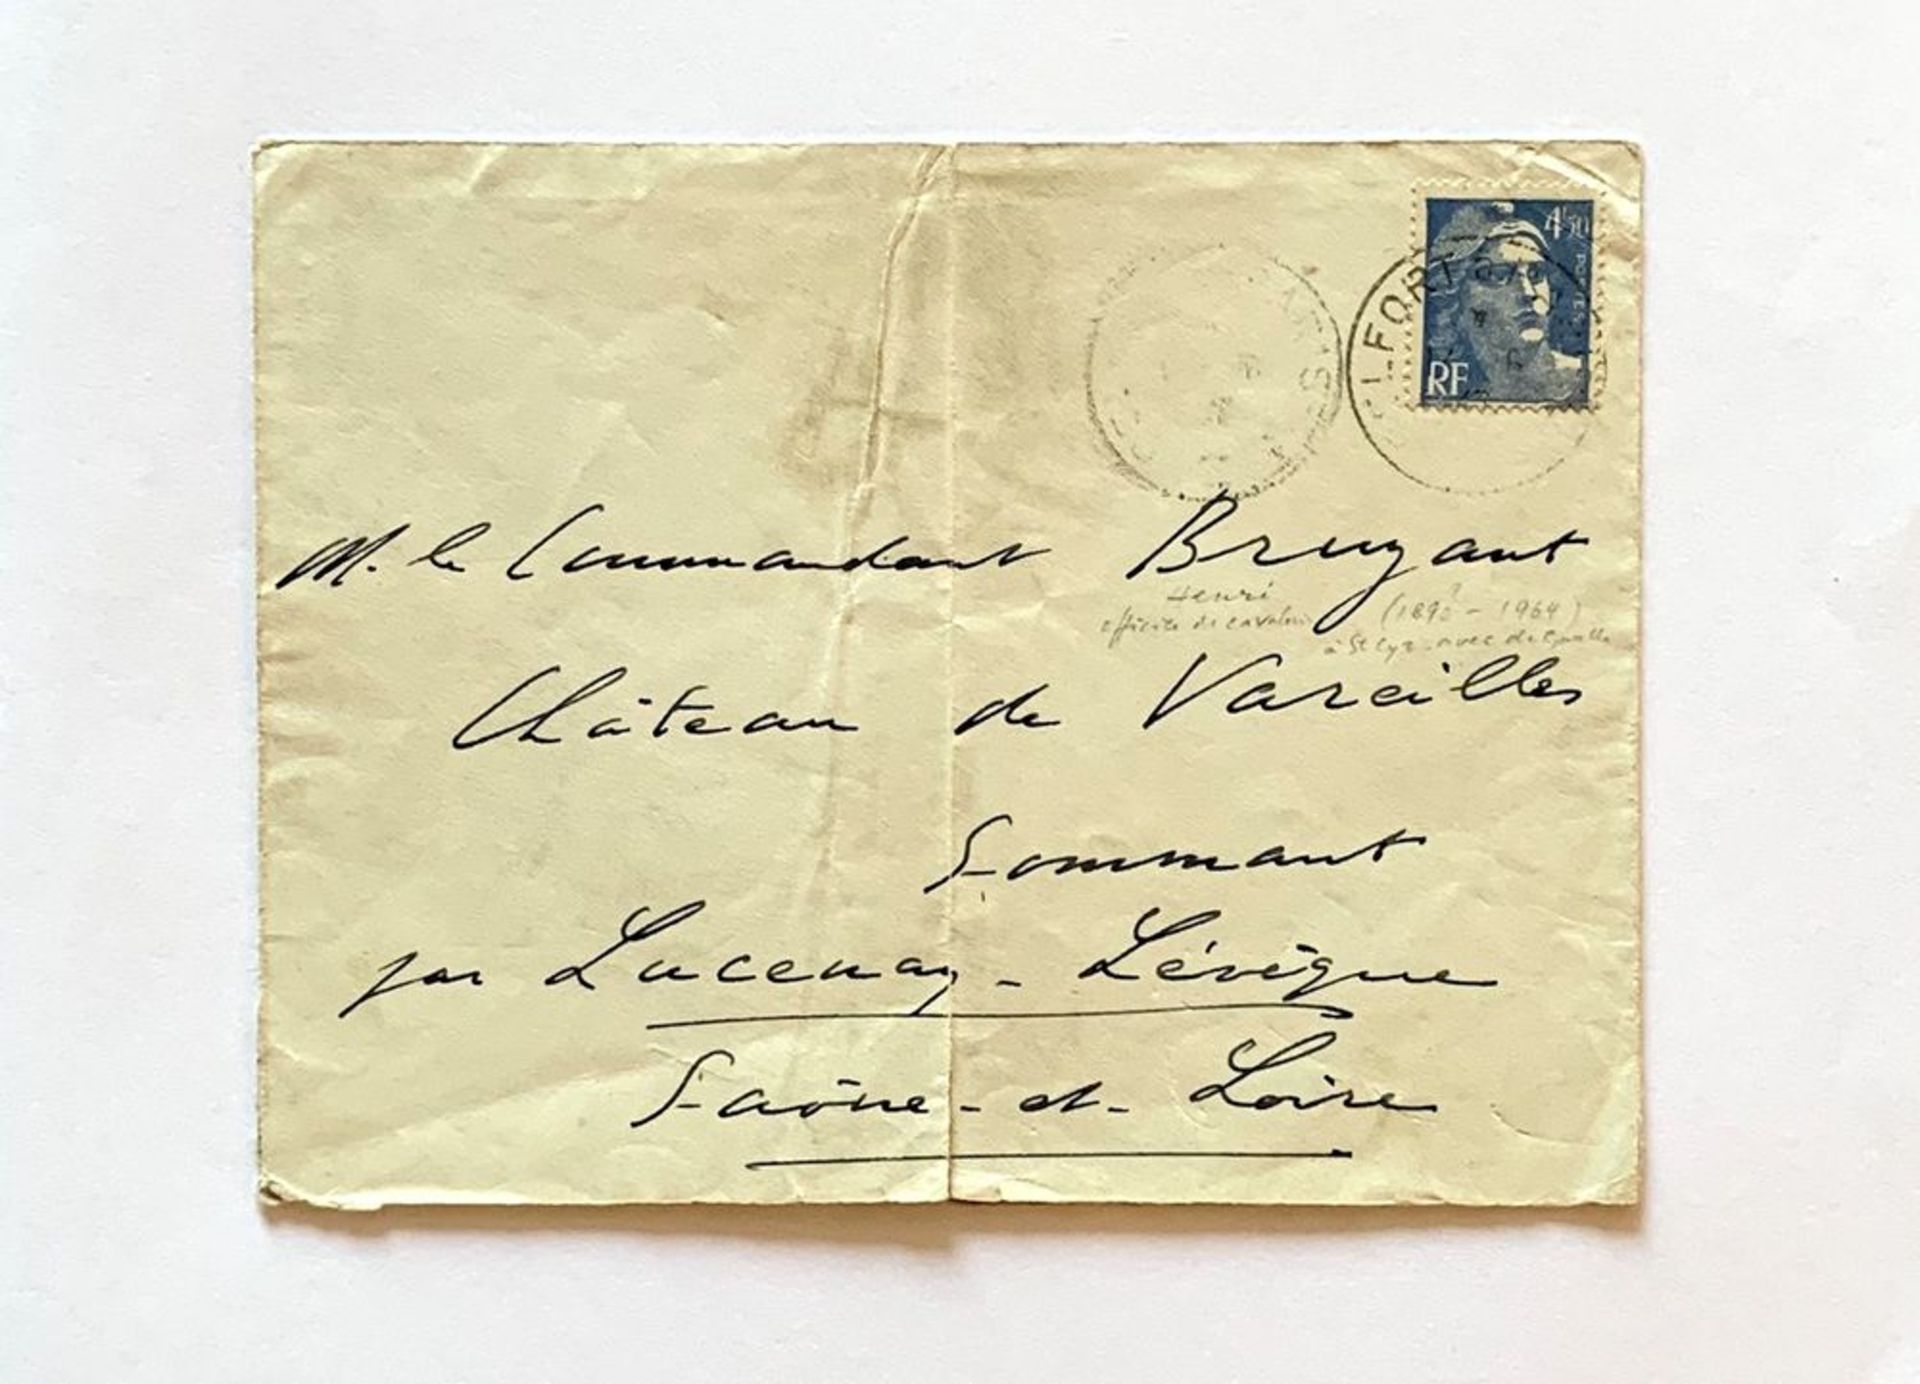 4F50
POSTES
RF
M. le Commandant Bruyant
Henri
officier de cavalerie
(189? - 1964)
à St Cyr avec de Gaulle
Château de Vareilles
Sommant
par Lucenay-Lévêque
Saône-et-Loire